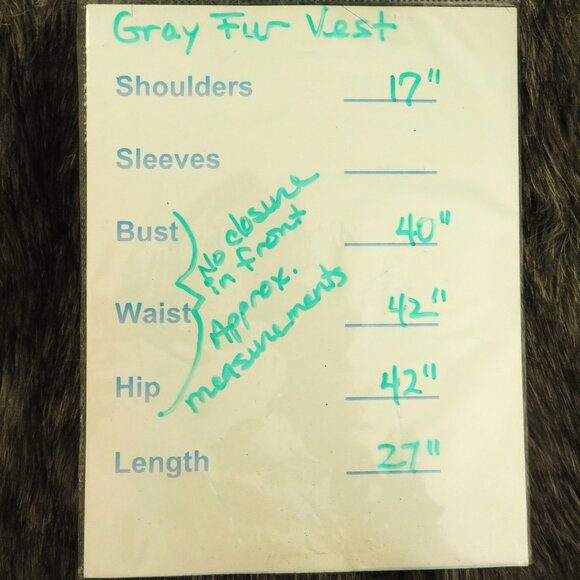 Gray Fur Vest
Shoulders 17"
Sleeves
Bust 40"
Waist 42"
Hip 42"
No closure
in front
Approx.
measurements
Length 27"